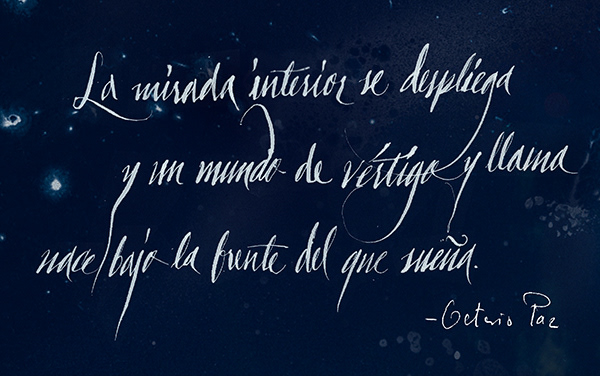 La mirada interior se despliega
y un mundo de vértigo y llama
nace bajo la frente del que sueña.
-Octavio Paz